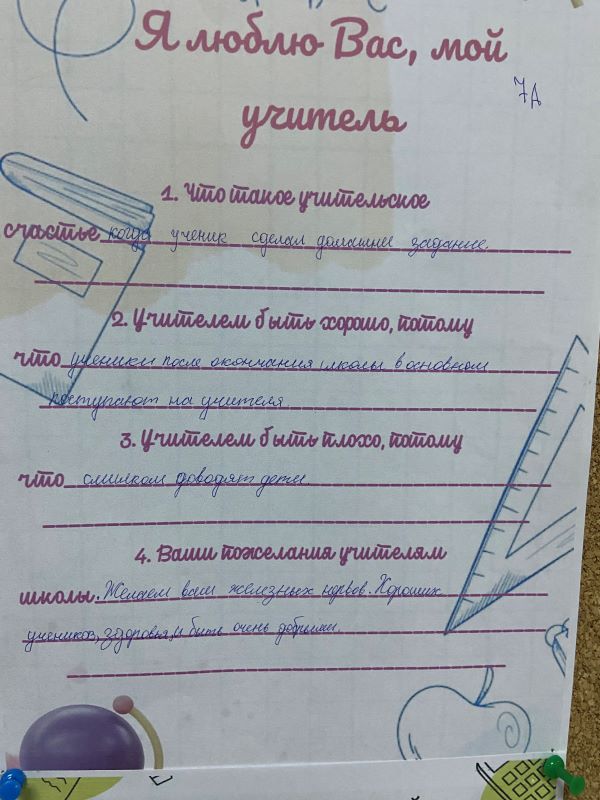 Я люблю Вас, мой
7д
учитель
1. Что такое учительское
счастье когда ученик сделал домашнее задание.
2. Учителем быть хорошо, потому
что ученики после окончания школы в основном
поступают на учителя
3. Учителем быть плохо, потому
что слишком доводят дети.
4. Ваши пожелания учителям
школы. Желаем вам железных нервов. Хороших
учеников, здоровья, и быть очень добрыми.